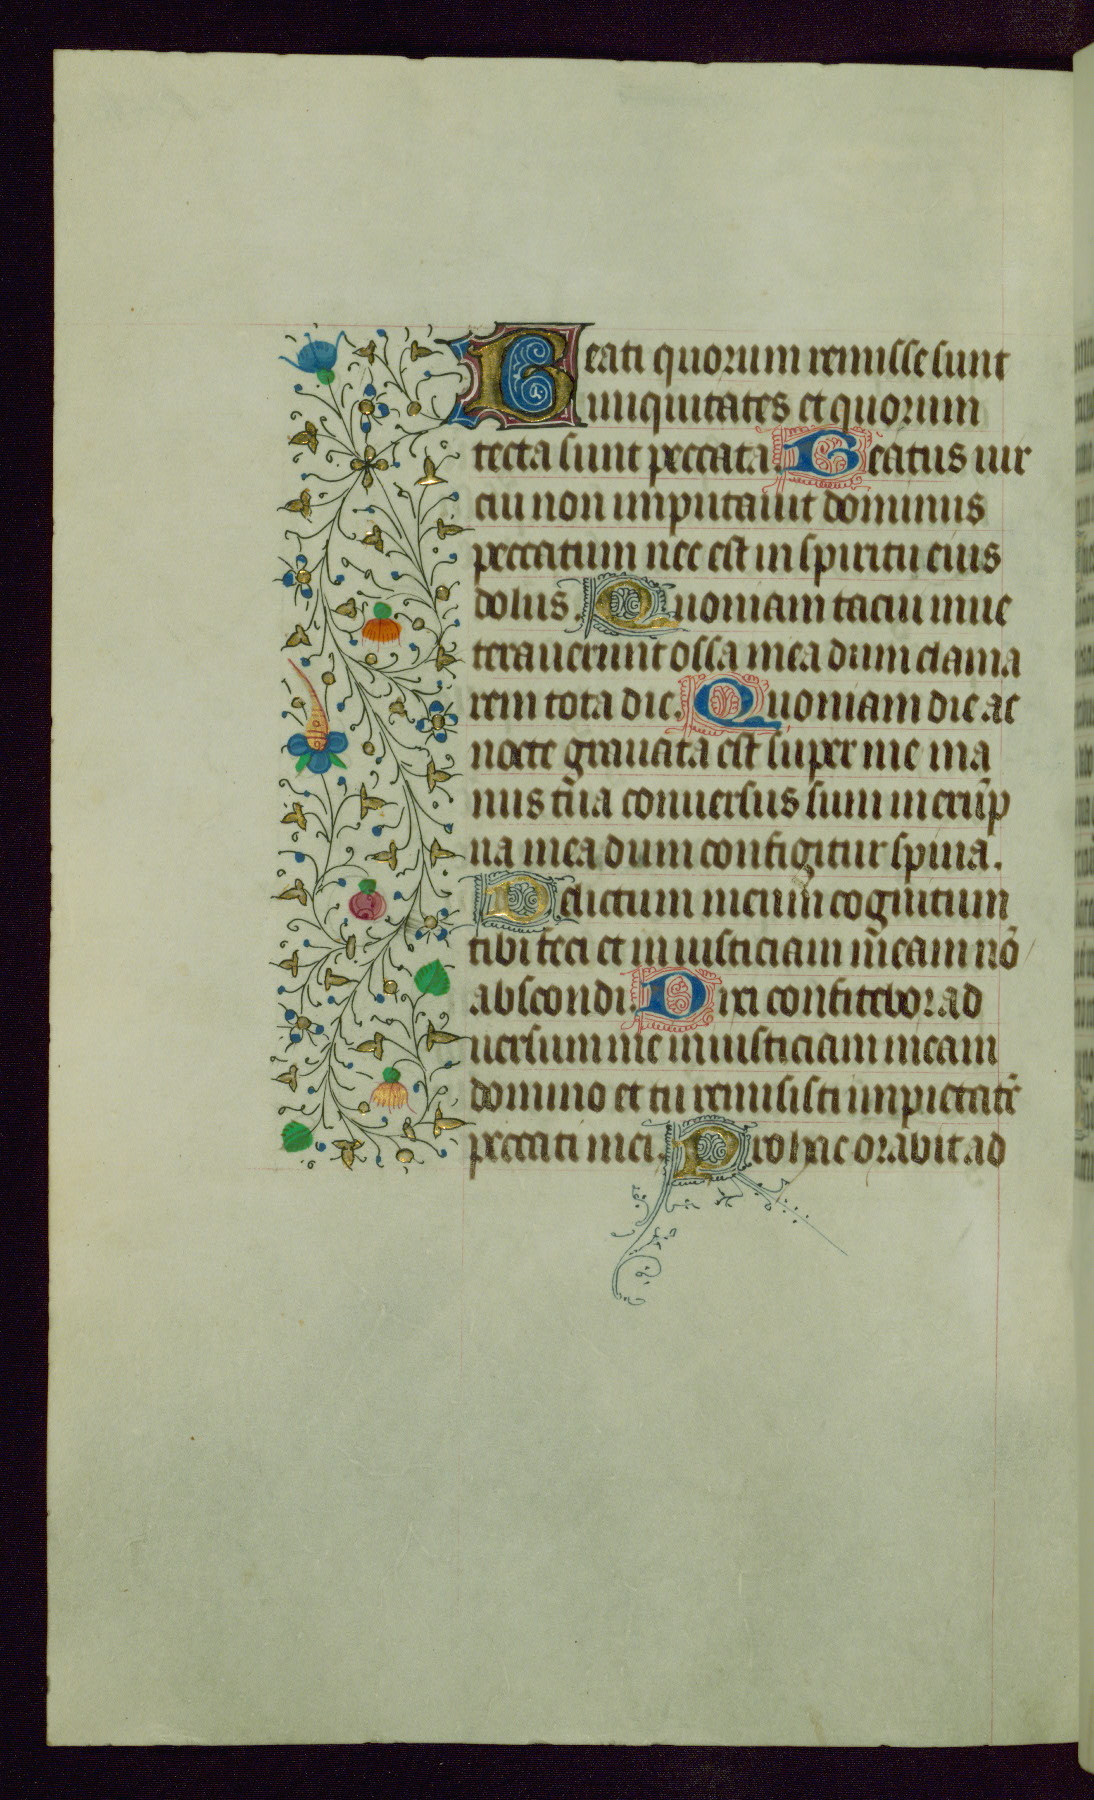 Beati quorum remisse sunt
iniquitates et quorum
tecta sunt peccata. Beatus uir
cui non imputauit dominus
peccatum nec est in spiritu eius
dolus. Quoniam tacui inue
terauerunt ossa mea dum clama
rem tota die. Quoniam die ac
nocte grauata est super me ma
nus tua conuersus sum in erūp
na mea dum configitur spina.
Delictum meum cognitum
tibi feci et iniusticiam meam nō
abscondi. Dixi confitebor ad
uersum me iniusticiam meam
domino et tu remisisti impietatē
peccati mei. Pro hac orabit ad